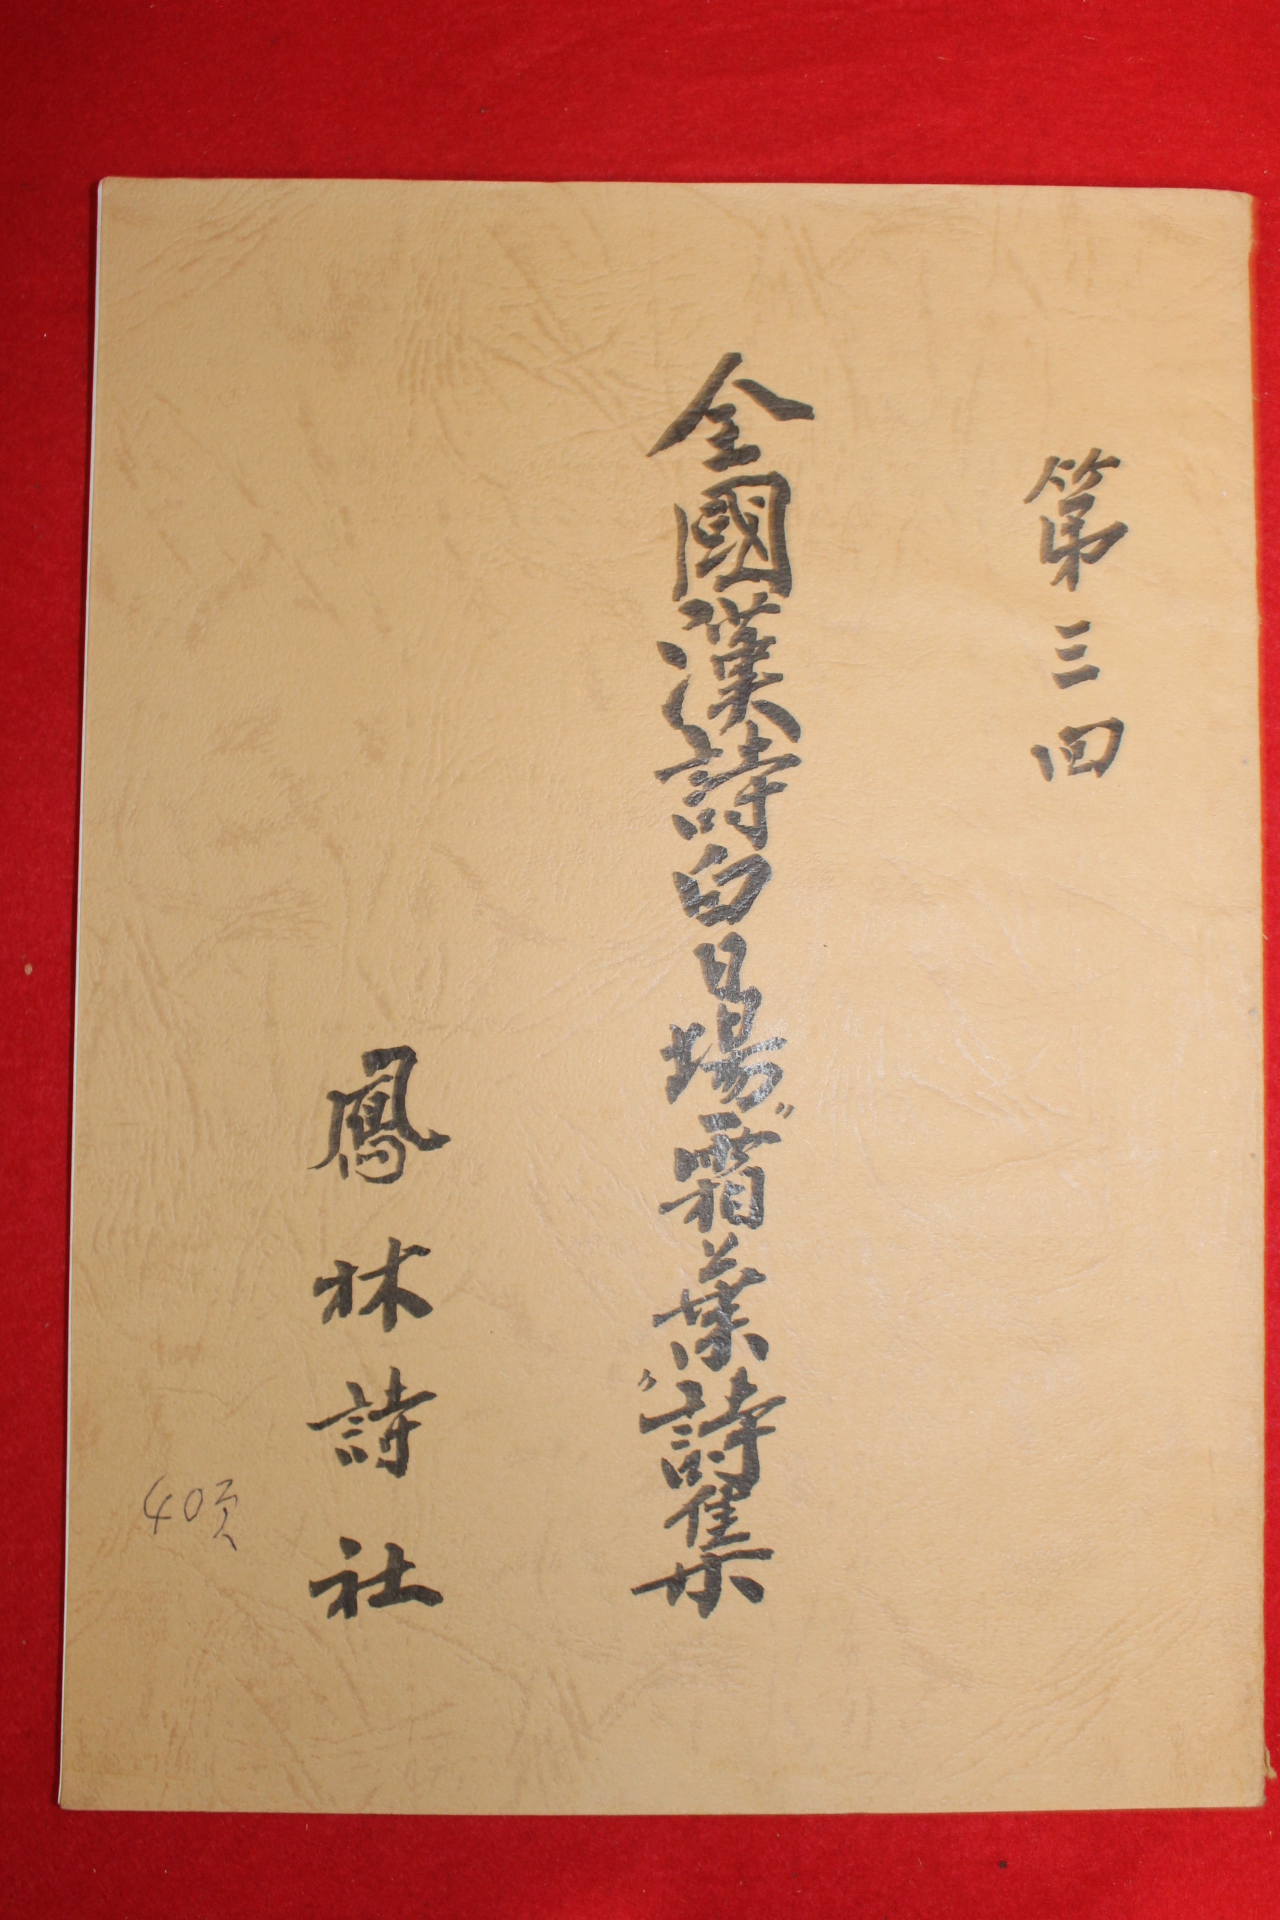 第三回
全國漢詩白日場"霜葉"詩集
鳳林詩社
40頁